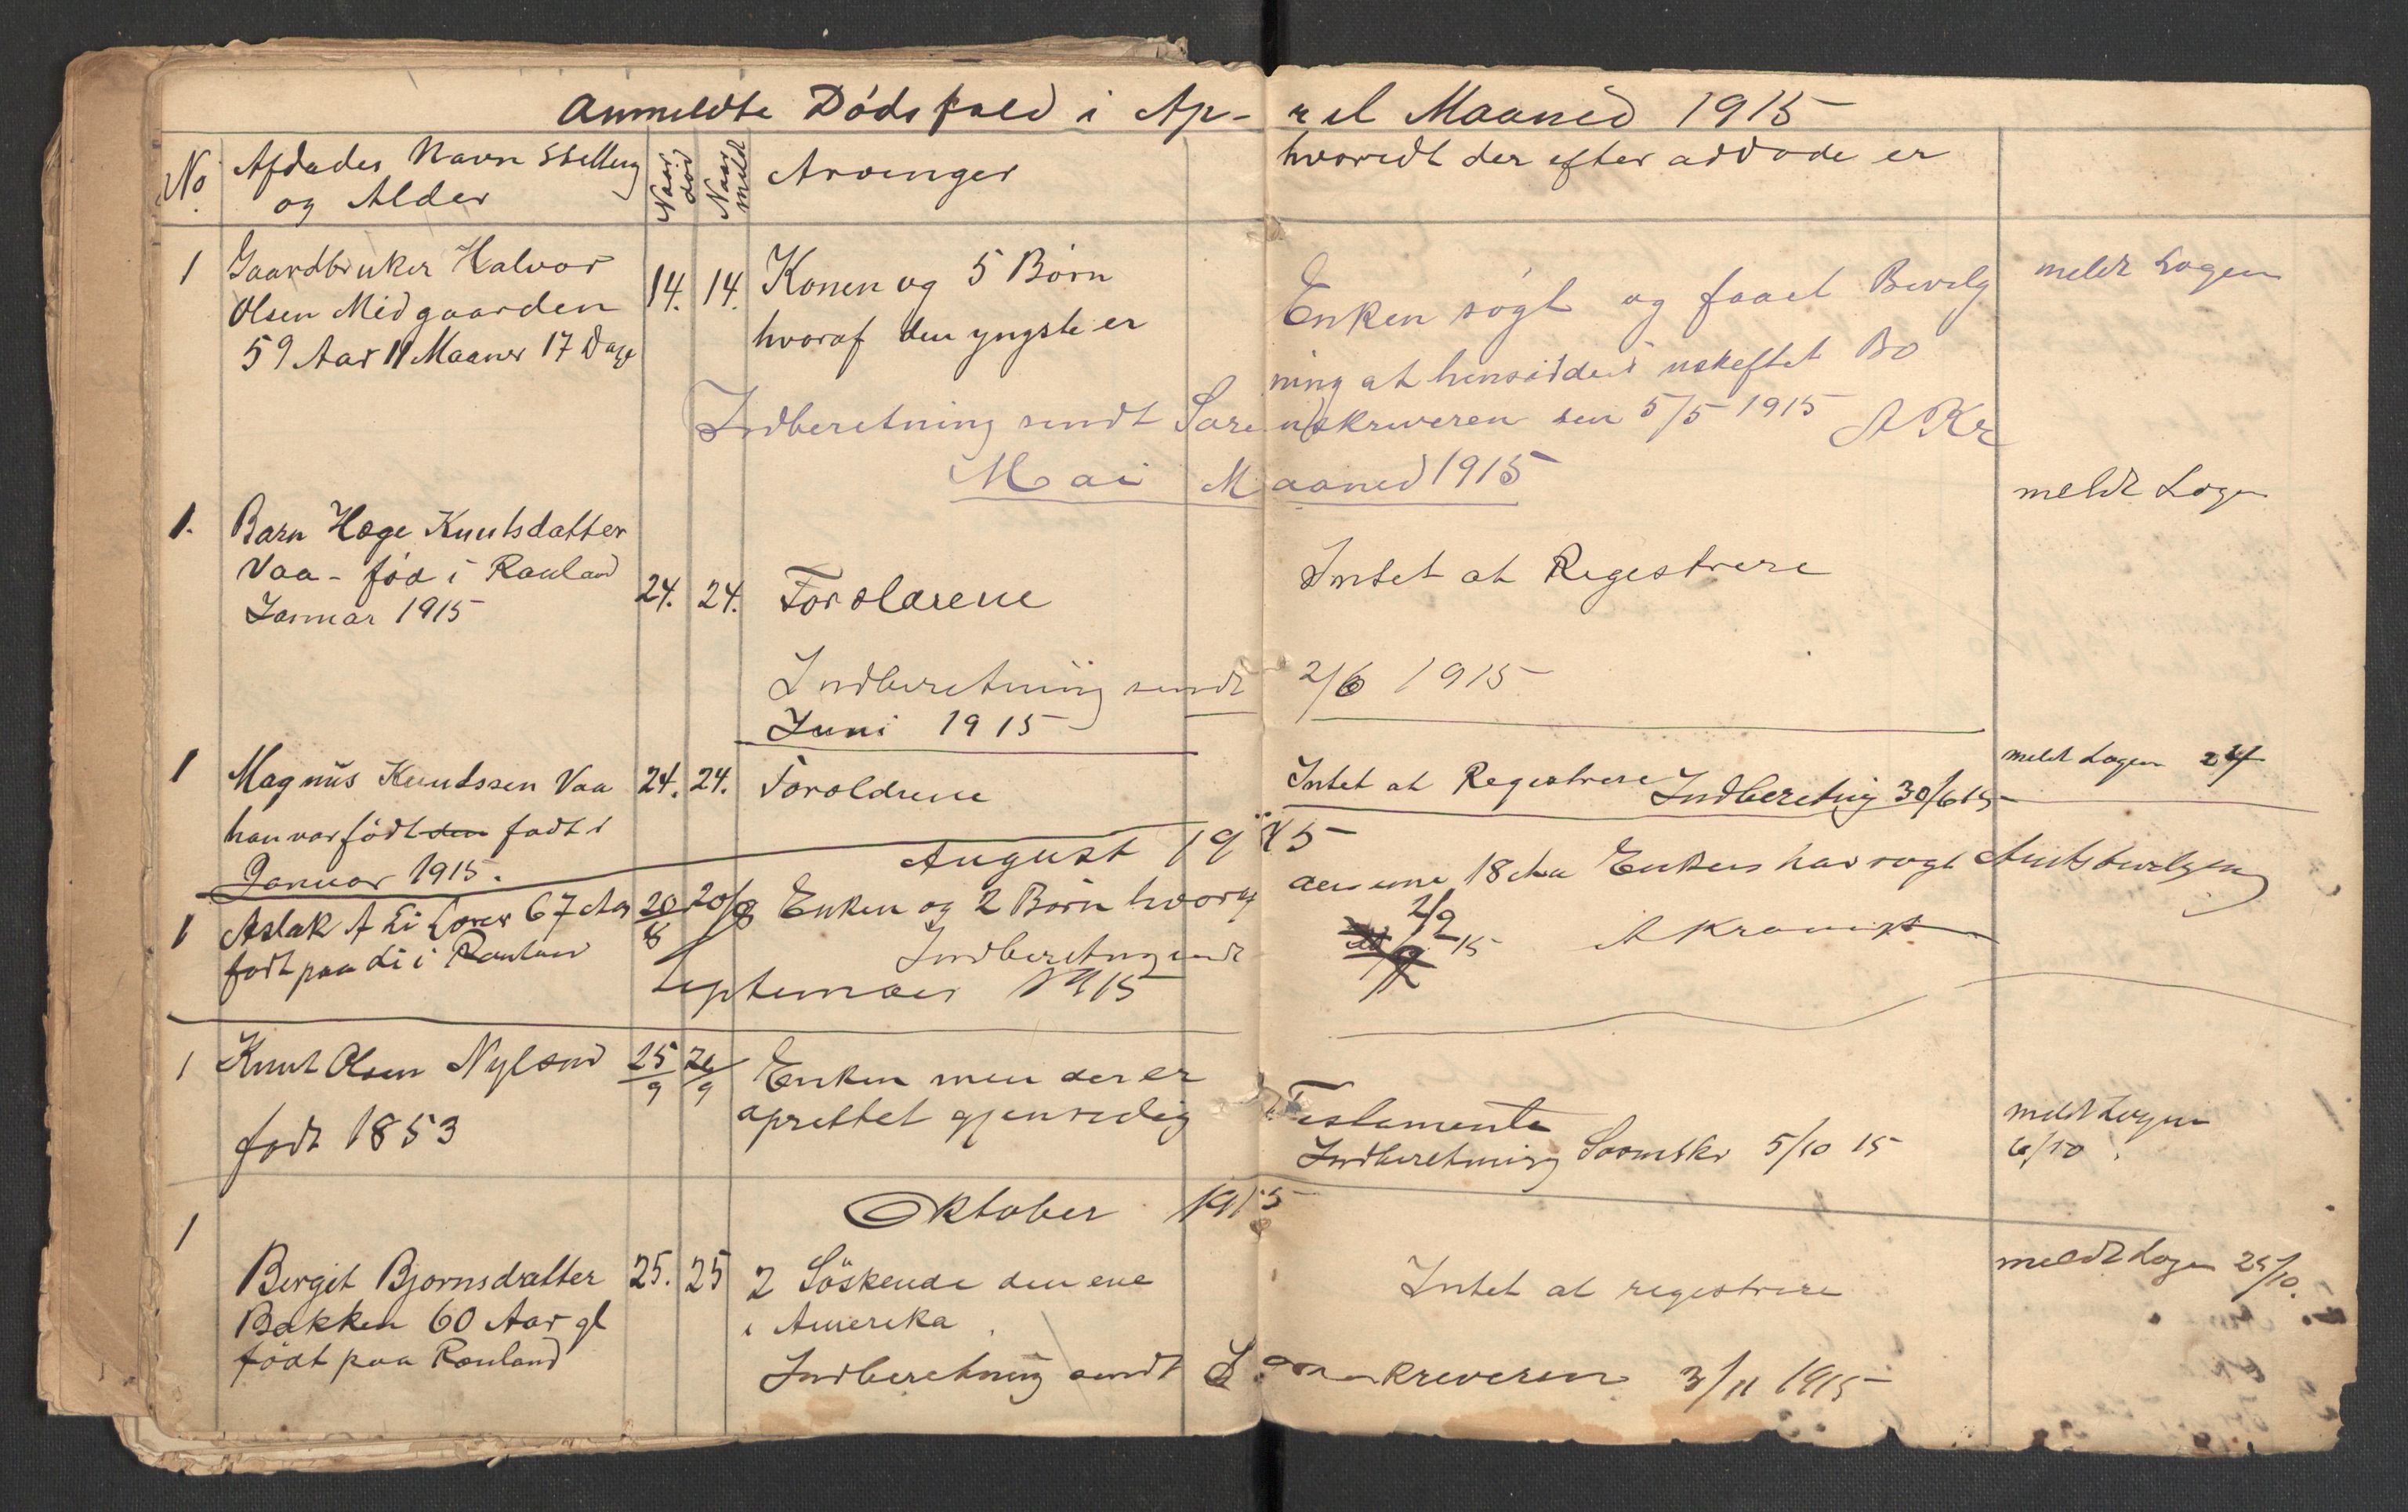 Anmeldte Dødsfald i Ap- ril Maaned 1915
No Afdødes Navn Stelling og Alder
Naar død
Naar meld
Arvinger
hvorvidt der efter afdøde er
1 Gaardbruker Halvor
Olsen Midgaarden
59 Aar 11 Maaner 17 Dage
14. 14.
Konen og 5 Børn
hvoraf den yngste er
Enken søgt og faaet Bevilg
ning at hensidde i uskeftet Bo
meldt Logen
Indberetning sendt Sorenskriveren den 5/5 1915 A Kr
Mai Maaned 1915
1. Barn Hæge Knutsdatter
Vaa - fød i Rauland
Januar 1915
24. 24. Forældrene
Intet at Regestrere
meldt Logen
Indberetning sendt 2/6 1915
Juni 1915
1 Magnus Knudssen Vaa
han var födt den født i
Januar 1915.
24. 24. Forældrene
Intet at Regestrere Indberetnig 30/6 15
meldt Logen 24
August 1915
1 Aslak A Li 67 Aar
født paa Li i Rauland
20/8 20/8 Enken og 2 Børn hvoraf
den ene 18 Aar Enken har søgt Amtsbevilgning
Indberetning sendt 2/9 15 A Kromviget
September 1915
1 Knut Olsen Nylænd
født 1853
25/9 26/9 Enken men der er
oprettet gjensedig Testamente
Indberetning Sornskr 5/10 15
meldt Logen
6/10
Oktober 1915
1
Bergit Bjørnsdatter
Bakken 60 Aar gl
födt paa Rauland
25. 25 2 Söskende den ene
i Amerika
Intet at regestrere
meldt Logen 25/10.
Indberetning sendt Sorenskreveren 3/11 1915